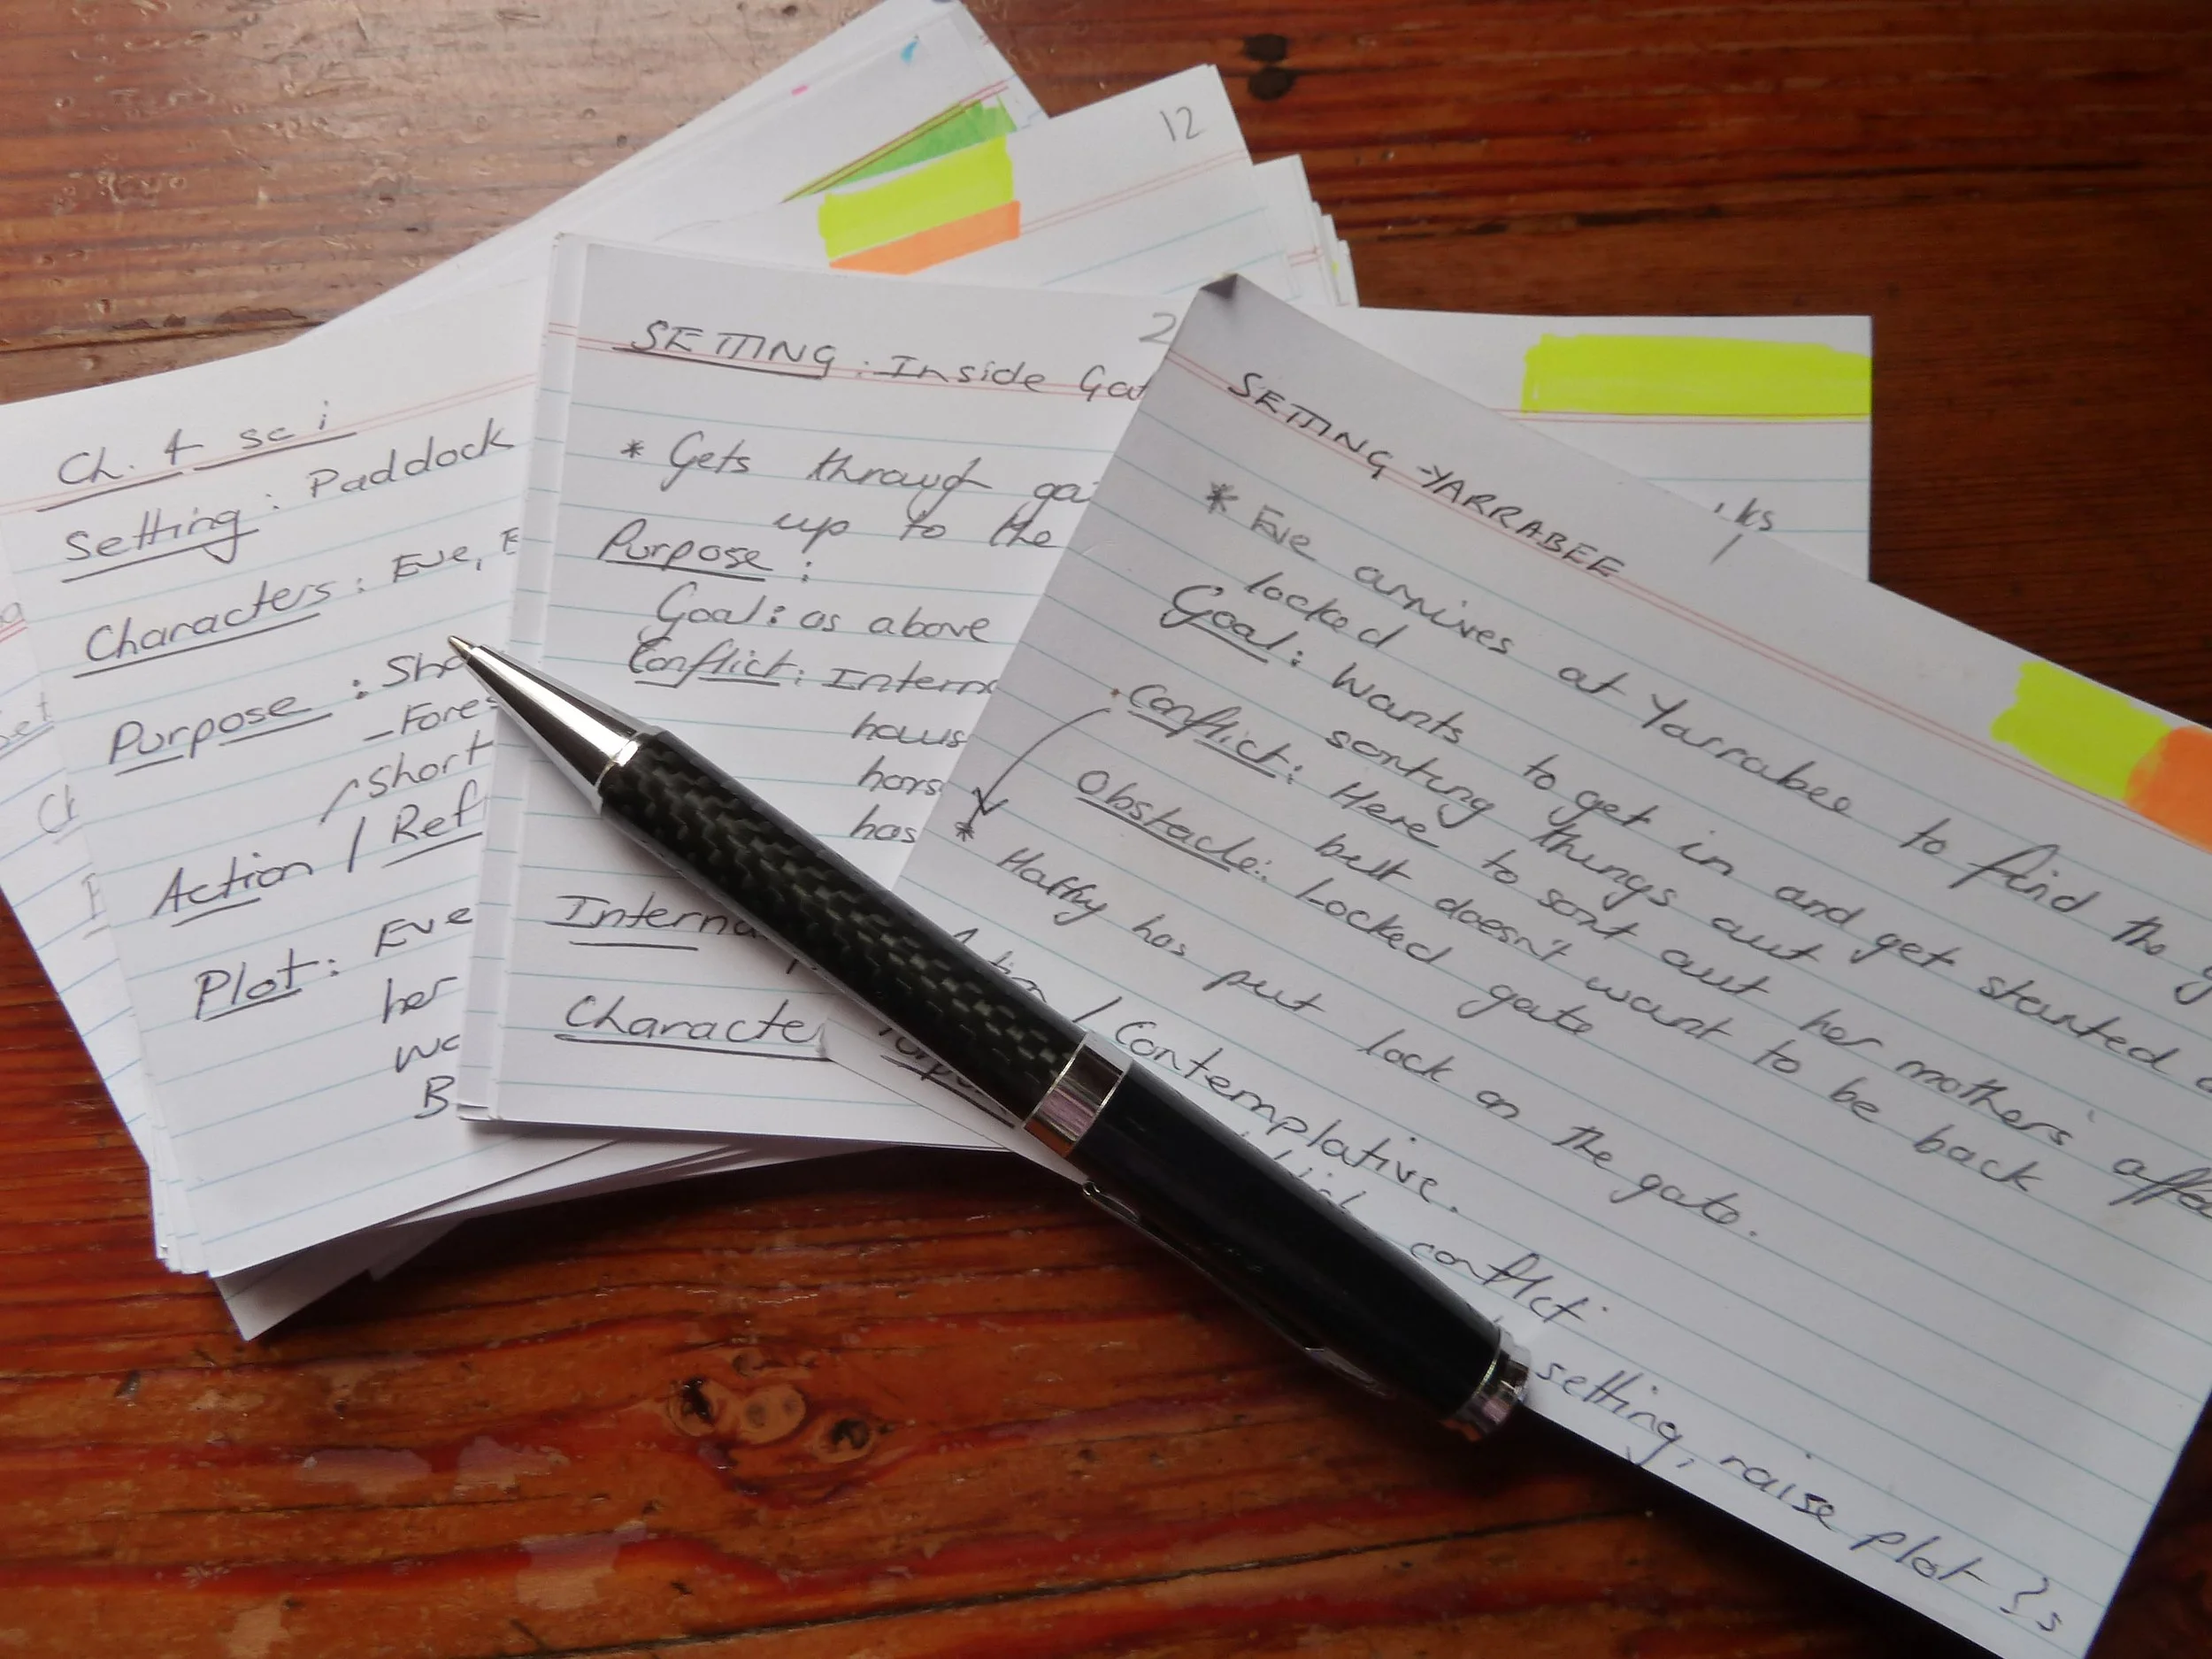 12
Ch. 4 sc i
Setting: Paddock
Characters: Eve, E
Purpose: Sho
-Fores
Short
Action / Ref
Plot: Eve
her
wa
B
2
SETTING: Inside Gat
* Gets through ga
up to the
Purpose:
Goal: as above
Conflict: Intern
hous
hors
has
Interna
Characte
SETTING - YARRABEE
* Eve arrives at Yarrabee to find the g
locked
Goal: Wants to get in and get started
sorting things out
Conflict: Here to sort out her mothers' affa
but doesn't want to be back
Obstacle: Locked gate
* Haffy has put lock on the gate.
/ Contemplative.
conflict
setting, raise plot ?s